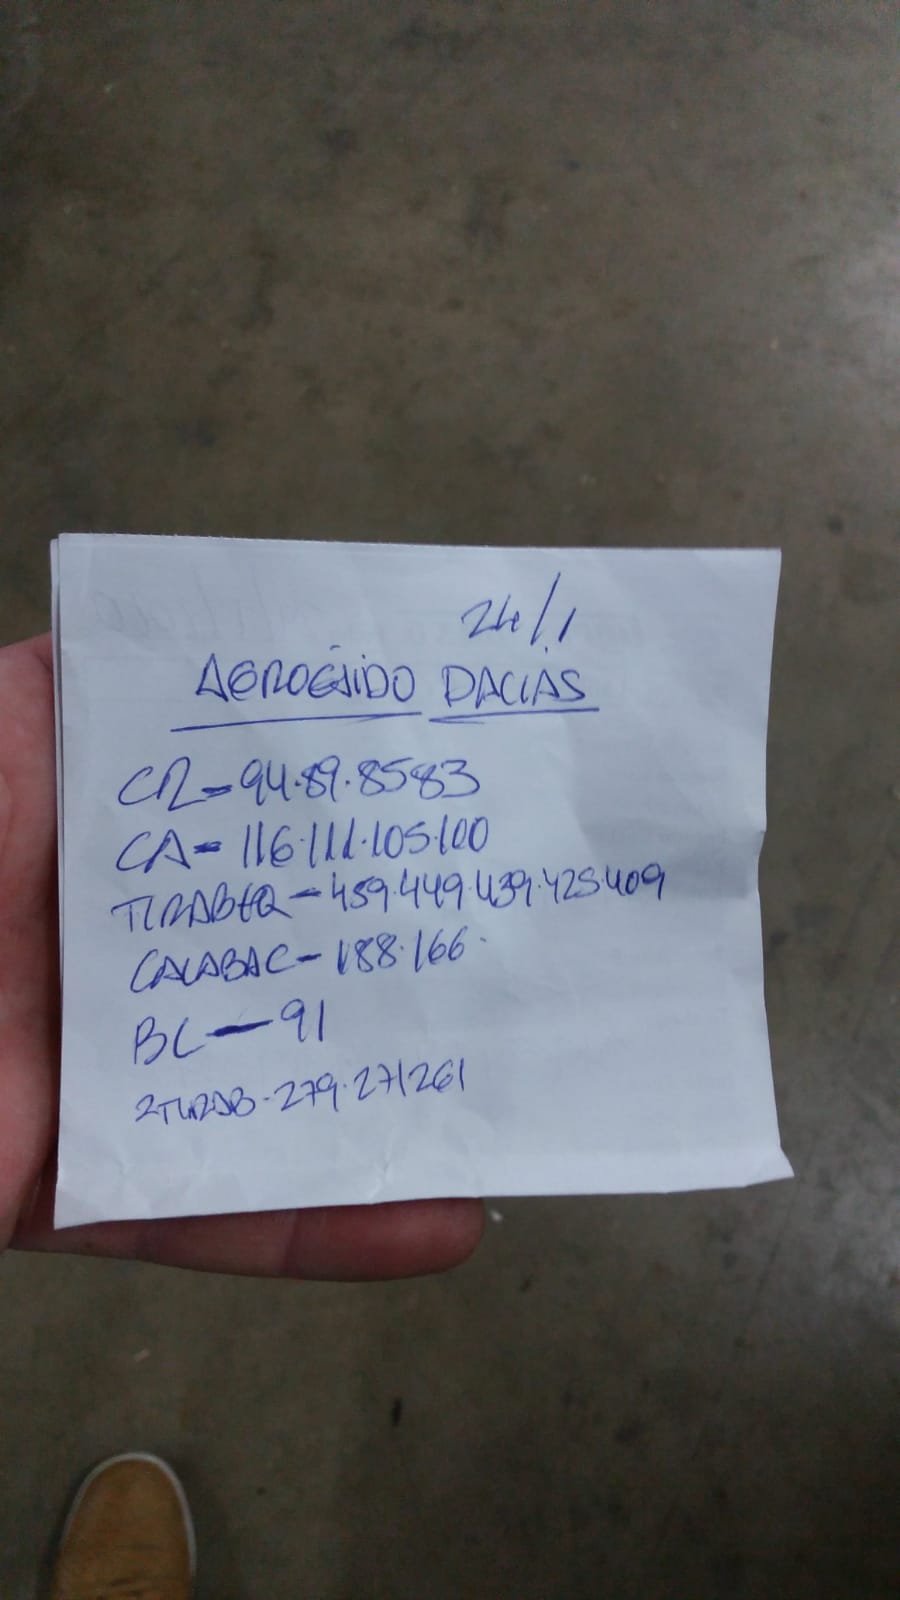 24/1
AGROEJIDO DALIAS
CR-94.89.8583
CA-116.111.105.100
TIRABEQ-459.449.439.425409
CALABAC-188.166.
BL-91
2TIRAB-279.271261